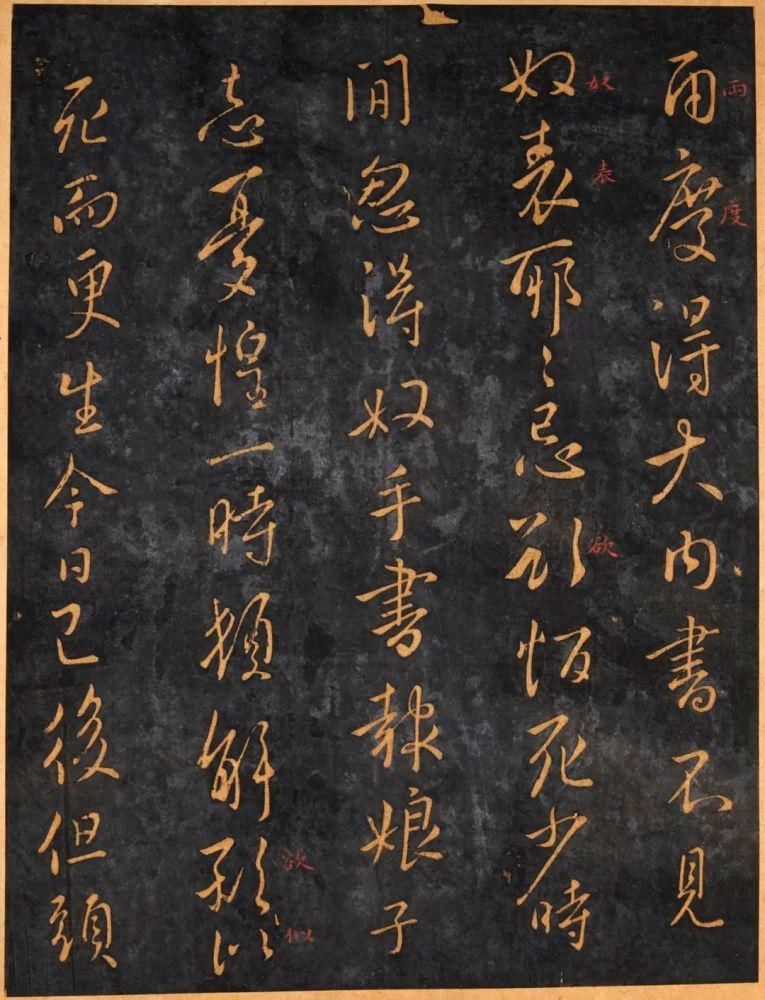 両度得大内書不見
奴表耶〻忌欲恒死少時
間忽得奴手書報娘子
忌憂惶一時頓解欲似
死而更生今日已後但頭
両
度
奴
表
欲
欲
似